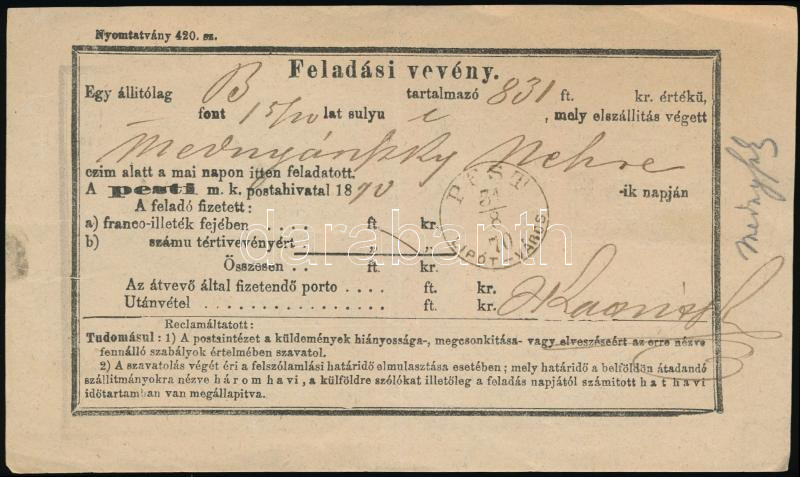 Nyomtatvány 420. sz.
Feladási vevény.
Egy állitólag B tartalmazó 831 ft. kr. értékü,
font 1 5/10 lat sulyu , mely elszállitás végett
Mednyánszky Nehre
czim alatt a mai napon itten feladatott.
A pesti m. k. postahivatal 1870 -ik napján
A feladó fizetett:
a) franco-illeték fejében .... ft. kr.
b) számu tértivevényért . „ „
Összesen .. ft. kr.
Az átvevő által fizetendő porto .... ft. kr.
Utánvétel .................. ft. kr.
PEST
31/8
70
LIPÓT-VÁROS
Reclamáltatott:
Tudomásul: 1) A postaintézet a küldemények hiányossága-, megcsonkitása- vagy elveszéseért az erre nézve
fennálló szabályok értelmében szavatol.
2) A szavatolás végét éri a felszólamlási határidő elmulasztása esetében; mely határidő a belföldön átadandó
szállitmányokra nézve három havi, a külföldre szólókat illetőleg a feladás napjától számitott hat havi
időtartamban van megállapitva.
darabanth.com